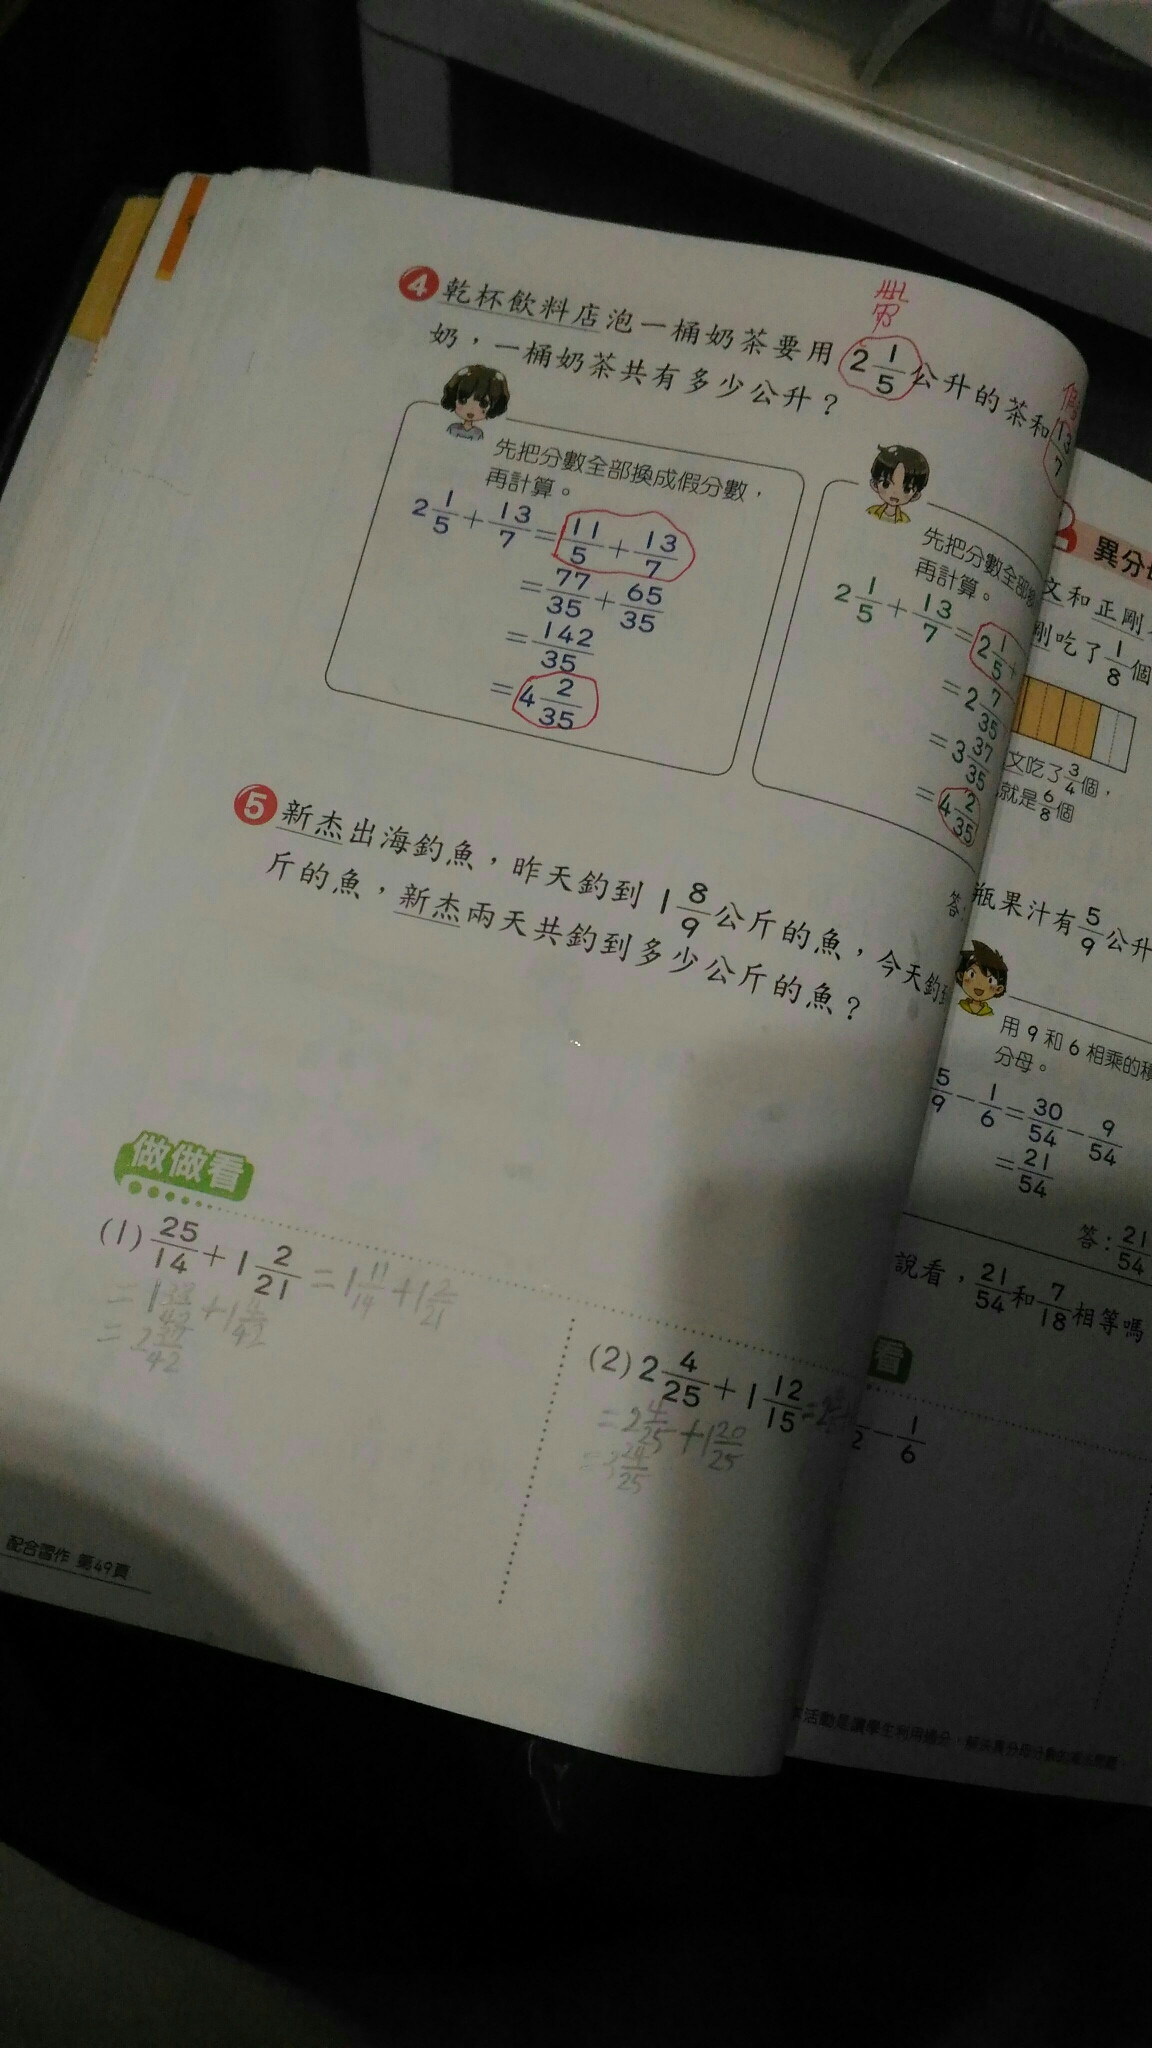 帶
假
4 乾杯飲料店泡一桶奶茶要用 2 1/5 公升的茶和 13/7
奶，一桶奶茶共有多少公升？
先把分數全部換成假分數，
再計算。
2 1/5 + 13/7 = 11/5 + 13/7
= 77/35 + 65/35
= 142/35
= 4 2/35
先把分數全部
再計算。
2 1/5 + 13/7 = 2 1/5 +
= 2 7/35
= 3 37/35
= 4 2/35
答：
5 新杰出海釣魚，昨天釣到 1 8/9 公斤的魚，今天釣到
斤的魚，新杰兩天共釣到多少公斤的魚？
做做看
(1) 25/14 + 1 2/21 = 1 11/14 + 1 2/21
= 1 33/42 + 1 4/42
= 2 37/42
(2) 2 4/25 + 1 12/15 =
= 2 4/25 + 1 20/25
= 3 24/25
配合習作 第49頁
異分
文和正剛
剛吃了 1/8 個
文吃了 3/4 個，
就是 6/8 個
瓶果汁有 5/9 公升
用 9 和 6 相乘的積
分母。
5/9 − 1/6 = 30/54 − 9/54
= 21/54
答：21/54
說看，21/54 和 7/18 相等嗎
看
2 − 1/6
活動是讓學生利用通分，解決異分母分數的